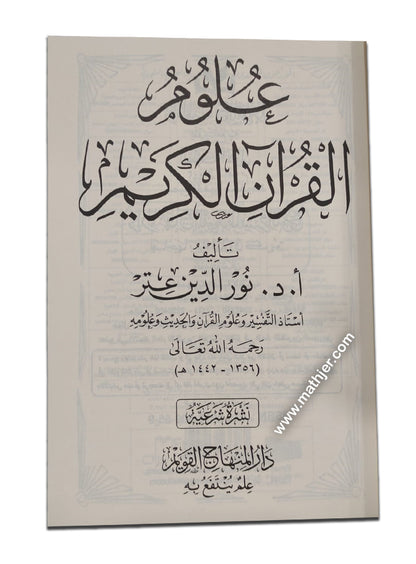 عُلُومُ
القُرْآنِ الكَرِيمِ
تَأليفُ
أ.د. نُورُ الدِّين عِتر
أستاذ التَّفْسِيرِ وَعُلُومِ القُرآنِ وَالحَدِيثِ وَعُلُومِهِ
رَحِمَهُ اللهُ تَعَالَى
(١٣٥٦ - ١٤٤٢ هـ)
نَشْرَةٌ شَرْعِيَّةٌ
دَارُ المِنْهَاجِ القَوِيمِ
عِلْمٌ يُنْتَفَعُ بِهِ
www.mathjer.com